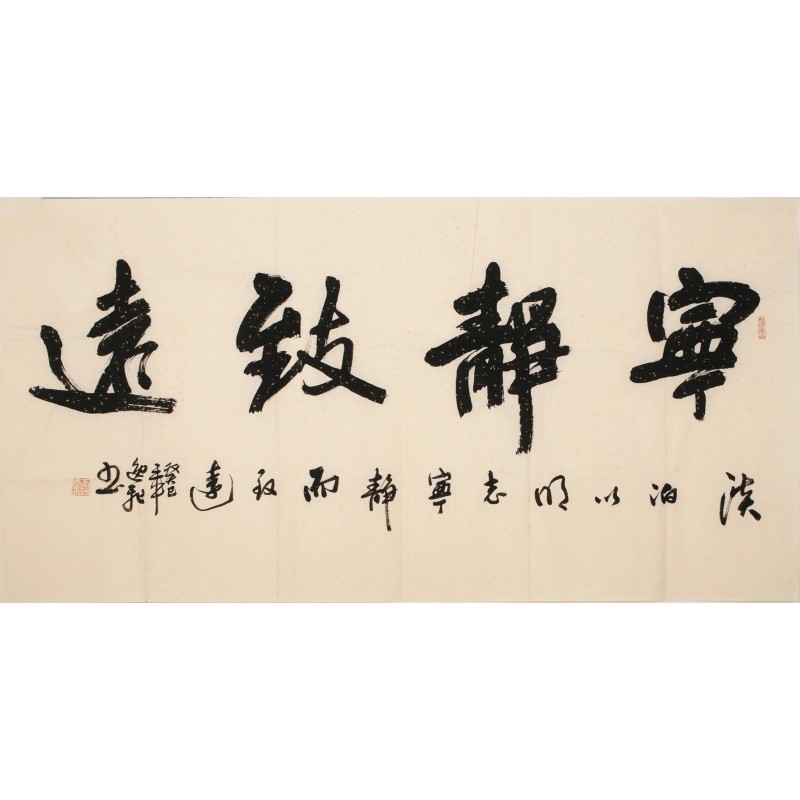 寧靜致遠
淡泊以明志寧靜而致遠
癸巳
書